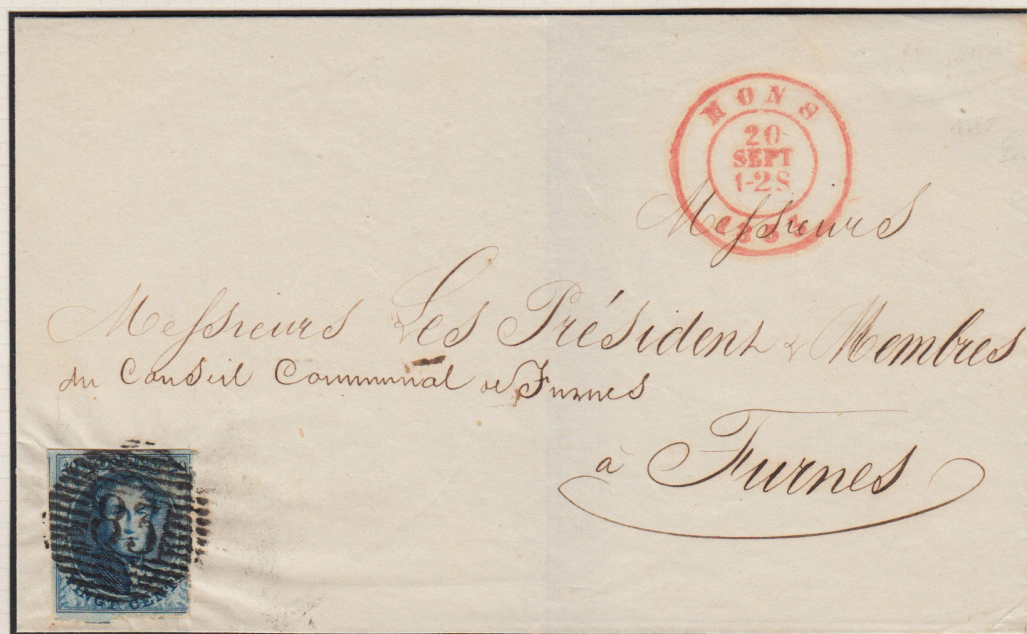 MONS
20
SEPT
1-2S
Messieurs
Messieurs Les Président & Membres
du Conseil Communal de Furnes
à Furnes
83
VINGT CENTS